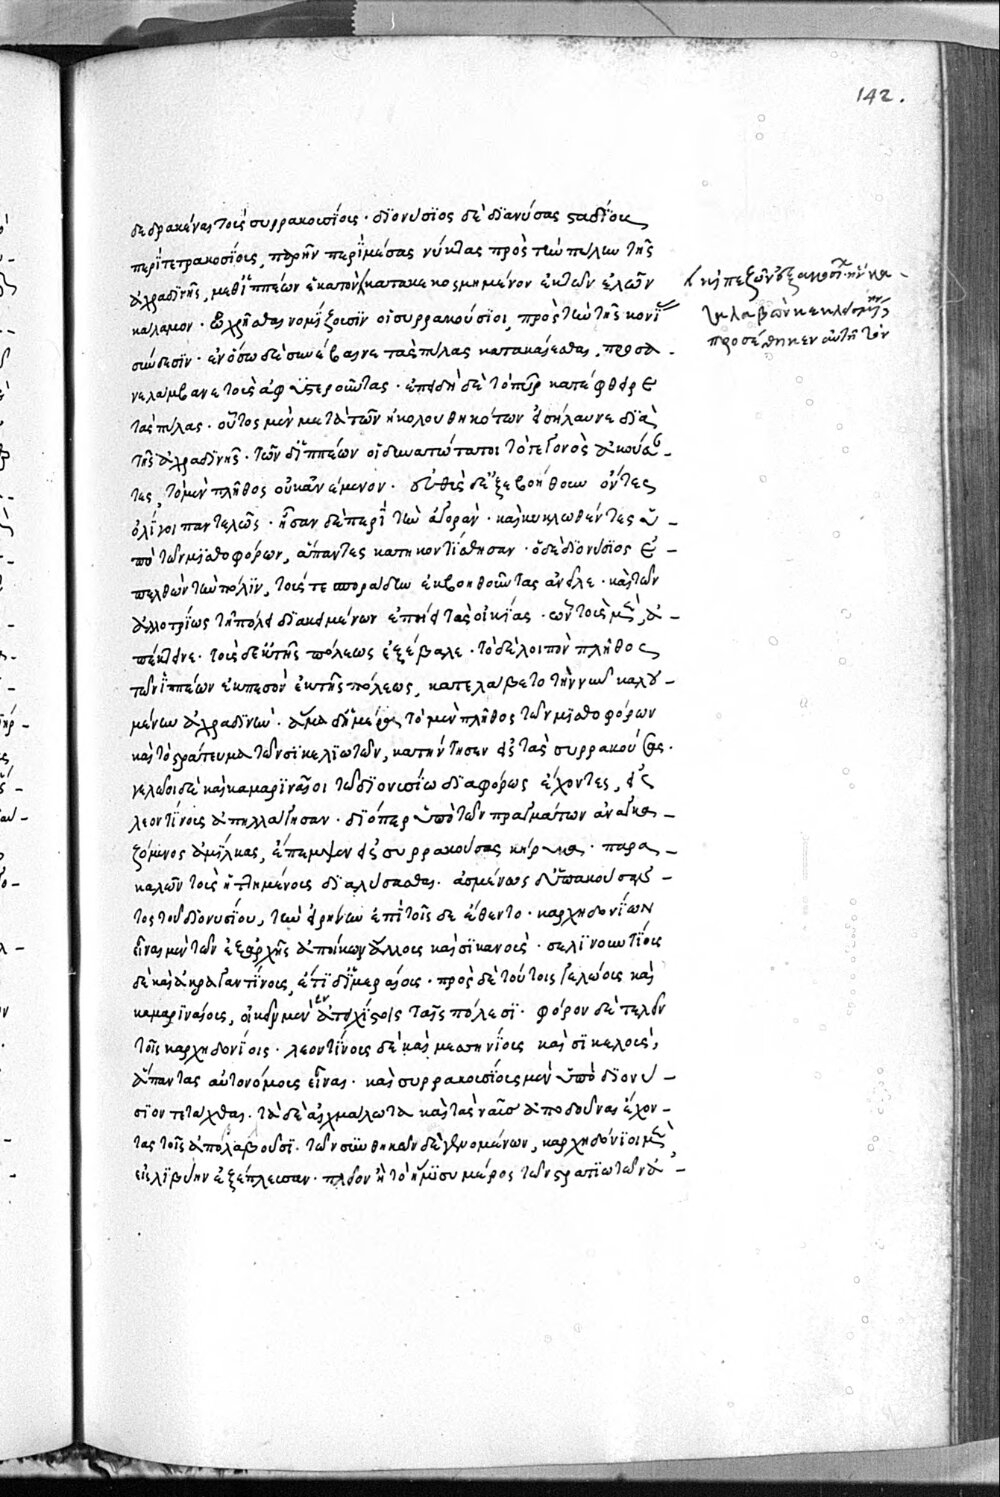 142.
δεδρακέναι τοῖς συρρακουσίοις· διονύσιος δὲ διανύσας σταδίους
περὶ τετρακοσίους, παρῆν περὶ μέσας νύκτας πρὸς τὴν πύλην τῆς
ἀχραδινῆς, μεθ' ἱππέων ἑκατὸν κατακεκοσμημένον ἐκ τῶν ἑλῶν
καὶ πεζῶν ἑξακοσίων· ἣν κα-
ταλαβὼν κεκλεισμένην
προσέθηκεν αὐτῇ τὸν
κάλαμον· ᾧ χρῆσθαι νομίζουσιν οἱ συρρακούσιοι, πρὸς τὴν τῆς κονίας
σύνδεσιν· ἐν ὅσῳ δὲ συνέβαινε τὰς πύλας κατακαίεσθαι, προσα-
νελάμβανε τοὺς ἀφυστεροῦντας· ἐπειδὴ δὲ τὸ πῦρ κατέφθειρε
τὰς πύλας· οὗτος μὲν μετὰ τῶν ἠκολουθηκότων εἰσήλαυνε διὰ
τῆς ἀχραδινῆς· τῶν δ' ἱππέων οἱ δυνατώτατοι τὸ γεγονὸς ἀκούσαν-
τες, τὸ μὲν πλῆθος οὐκ ἀνέμενον· εὐθὺς δ' ἐξεβοήθουν ὄντες
ὀλίγοι παντελῶς· ἦσαν δὲ περὶ τὴν ἀγοράν· καὶ κυκλωθέντες ὑ-
πὸ τῶν μισθοφόρων, ἅπαντες κατηκοντίσθησαν· ὁ δὲ διονύσιος ἐ-
πελθὼν τὴν πόλιν, τούς τε σποράδην ἐκβοηθοῦντας ἀνεῖλε· καὶ τῶν
ἀλλοτρίως τῇ πόλει διακειμένων ἐπῄει τὰς οἰκίας· ὧν τοὺς μὲν ἀ-
πέκτεινε· τοὺς δὲ ἐκ τῆς πόλεως ἐξέβαλε· τὸ δὲ λοιπὸν πλῆθος
τῶν ἱππέων ἐκπεσὸν ἐκ τῆς πόλεως, κατελάβετο τὴν νῦν καλου-
μένην ἀχραδινήν· ἅμα δ' ἡμέρᾳ τὸ μὲν πλῆθος τῶν μισθοφόρων
καὶ τὸ στράτευμα τῶν σικελιωτῶν, κατήντησεν εἰς τὰς συρρακούσας·
γελῶοι δὲ καὶ καμαριναῖοι τῷ διονυσίῳ διαφόρως ἔχοντες, εἰς
λεοντίνους ἀπηλλάγησαν· διόπερ ὑπὸ τῶν πραγμάτων ἀναγκα-
ζόμενος ἀμίλκας, ἔπεμψεν εἰς συρρακούσας κήρυκα· παρα-
καλῶν τοὺς ἡττημένους διαλύσασθαι· ἀσμένως δ' ὑπακούσαν-
τος τοῦ διονυσίου, τὴν εἰρήνην ἐπὶ τοῖσδε ἔθεντο· καρχηδονίων
εἶναι μὲν τῶν ἐξ ἀρχῆς ἀποίκων ἄλλους καὶ σικανούς· σελινουντίους
δὲ καὶ ἀκραγαντίνους, ἔτι δ' ἱμεραίους· πρὸς δὲ τούτοις γελώους καὶ
καμαριναίους, οἰκεῖν μὲν ἐν ἀτειχίστοις ταῖς πόλεσι· φόρον δὲ τελεῖν
τοῖς καρχηδονίοις· λεοντίνους δὲ καὶ μεσσηνίους καὶ σικελούς,
ἅπαντας αὐτονόμους εἶναι· καὶ συρρακουσίους μὲν ὑπὸ διονύ-
σιον τετάχθαι· τὰ δὲ αἰχμάλωτα καὶ τὰς ναῦς ἀποδοῦναι ἔχον-
τας τοῖς ἀπολαβοῦσι· τῶν συνθηκῶν δὲ γενομένων, καρχηδόνιοι μὲν
εἰς λιβύην ἐξέπλευσαν· πλεῖον ἢ τὸ ἥμισυ μέρος τῶν στρατιωτῶν ἀ-